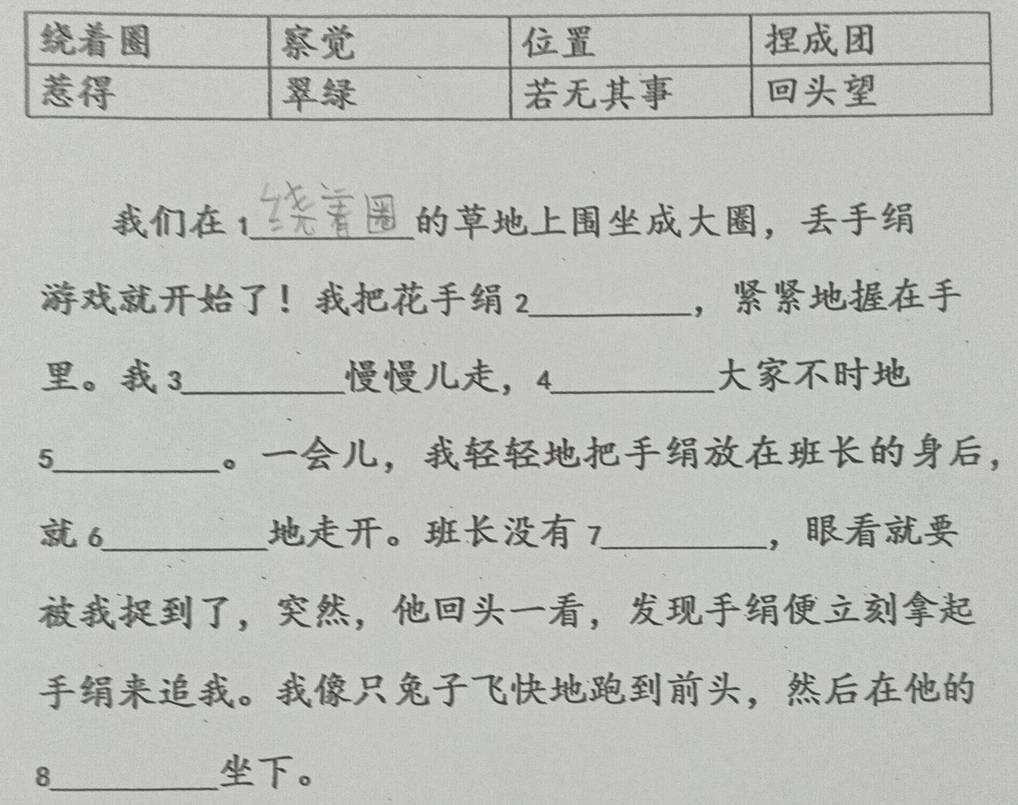 绕着圈 察觉 位置 捏成团
惹得 翠绿 若无其事 回头望
我们在 1 绕着圈 的草地上围坐成大圈，丢手绢
游戏就开始了！我把花手绢 2__________，紧紧地握在手
里。我 3__________慢慢儿走，4__________大家不时地
5__________。一会儿，我轻轻地把手绢放在班长的身后，
就 6__________地走开。班长没有 7__________，眼看就要
被我捉到了，突然，他回头一看，发现手绢便立刻拿起
手绢来追我。我像只兔子飞快地跑到前头，然后在他的
8__________坐下。